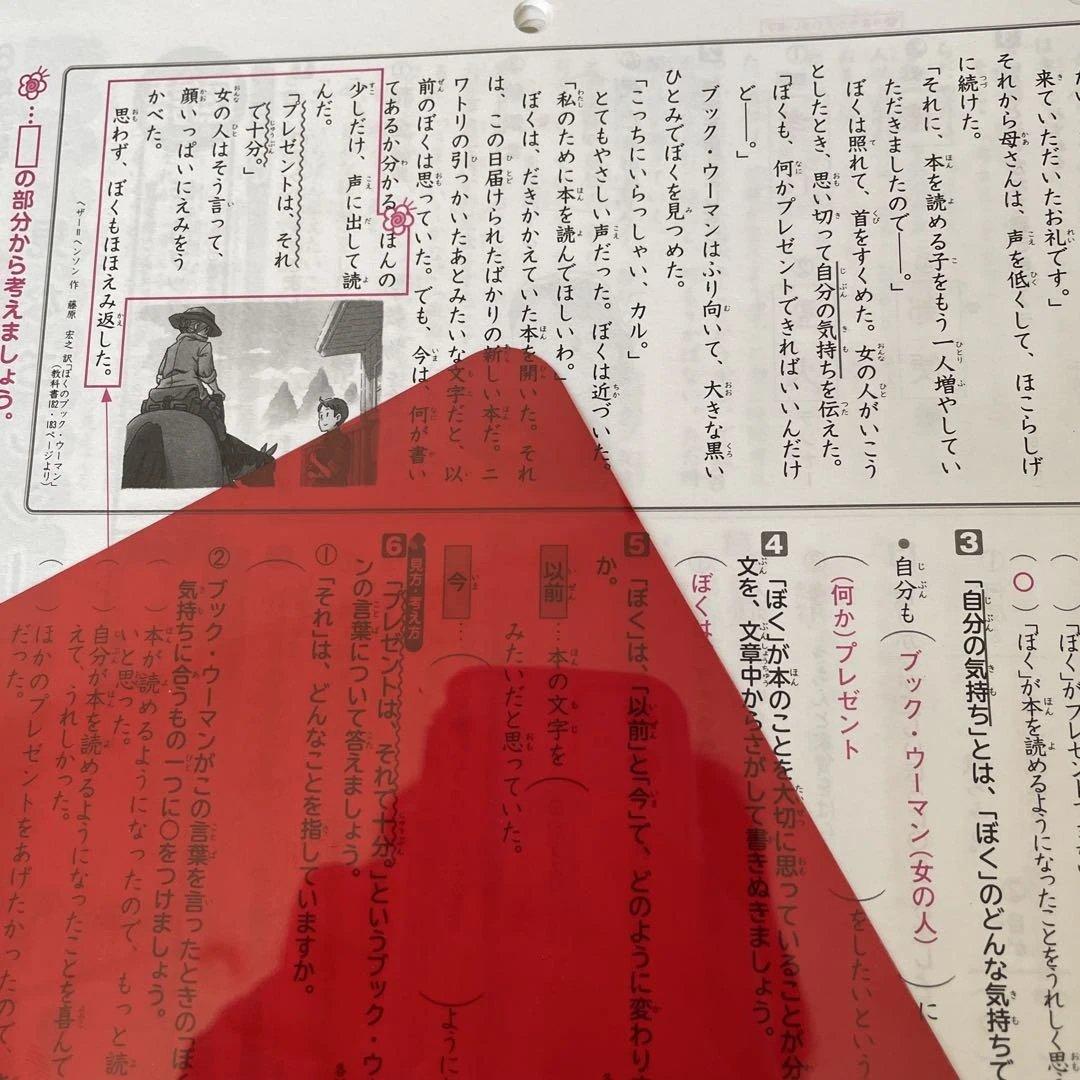 来ていただいたお礼です。」
それから母さんは、声を低くして、ほこらしげ
に続けた。
「それに、本を読める子をもう一人増やしてい
ただきましたので――。」
ぼくは照れて、首をすくめた。女の人がいこう
としたとき、思い切って自分の気持ちを伝えた。
「ぼくも、何かプレゼントできればいいんだけ
ど――。」
ブック・ウーマンはふり向いて、大きな黒い
ひとみでぼくを見つめた。
「こっちにいらっしゃい、カル。」
とてもやさしい声だった。ぼくは近づいた。
「私のために本を読んでほしいわ。」
ぼくは、だきかかえていた本を開いた。それ
は、この日届けられたばかりの新しい本だ。ニ
ワトリの引っかいたあとみたいな文字だと、以
前のぼくは思っていた。でも、今は、何が書い
てあるか分かる。ほんの
少しだけ、声に出して読
んだ。
「プレゼントは、それ
で十分。」
女の人はそう言って、
顔いっぱいにえみをう
かべた。
思わず、ぼくもほほえみ返した。
ヘザー=ヘンソン 作 藤原 宏之 訳「ぼくのブック・ウーマン」
(教科書182・183ページより)
…□の部分から考えましょう。
○)「ぼく」が本を読めるようになったことをうれしく思
3 「自分の気持ち」とは、「ぼく」のどんな気持ちで
・自分も(ブック・ウーマン(女の人))に
(何か)プレゼント
)をしたいという
4 「ぼく」が本のことを大切に思っていることが分
文を、文章中からさがして書きぬきましょう。
(ぼくは
5 「ぼく」は、「以前」と「今」で、どのように変わり
か。
以前…本の文字を(
みたいだと思っていた。
今…(
)ように
見方・考え方
6 「プレゼントは、それで十分。」というブック・ウ
ンの言葉について答えましょう。
① 「それ」は、どんなことを指していますか。
② ブック・ウーマンがこの言葉を言ったときの「ぼ
気持ちに合うもの一つに○をつけましょう。
( )本が読めるようになったので、もっと読
いと思った。
( )自分が本を読めるようになったことを喜んで
えて、うれしかった。
( )ほかのプレゼントをあげたかったので、
だった。